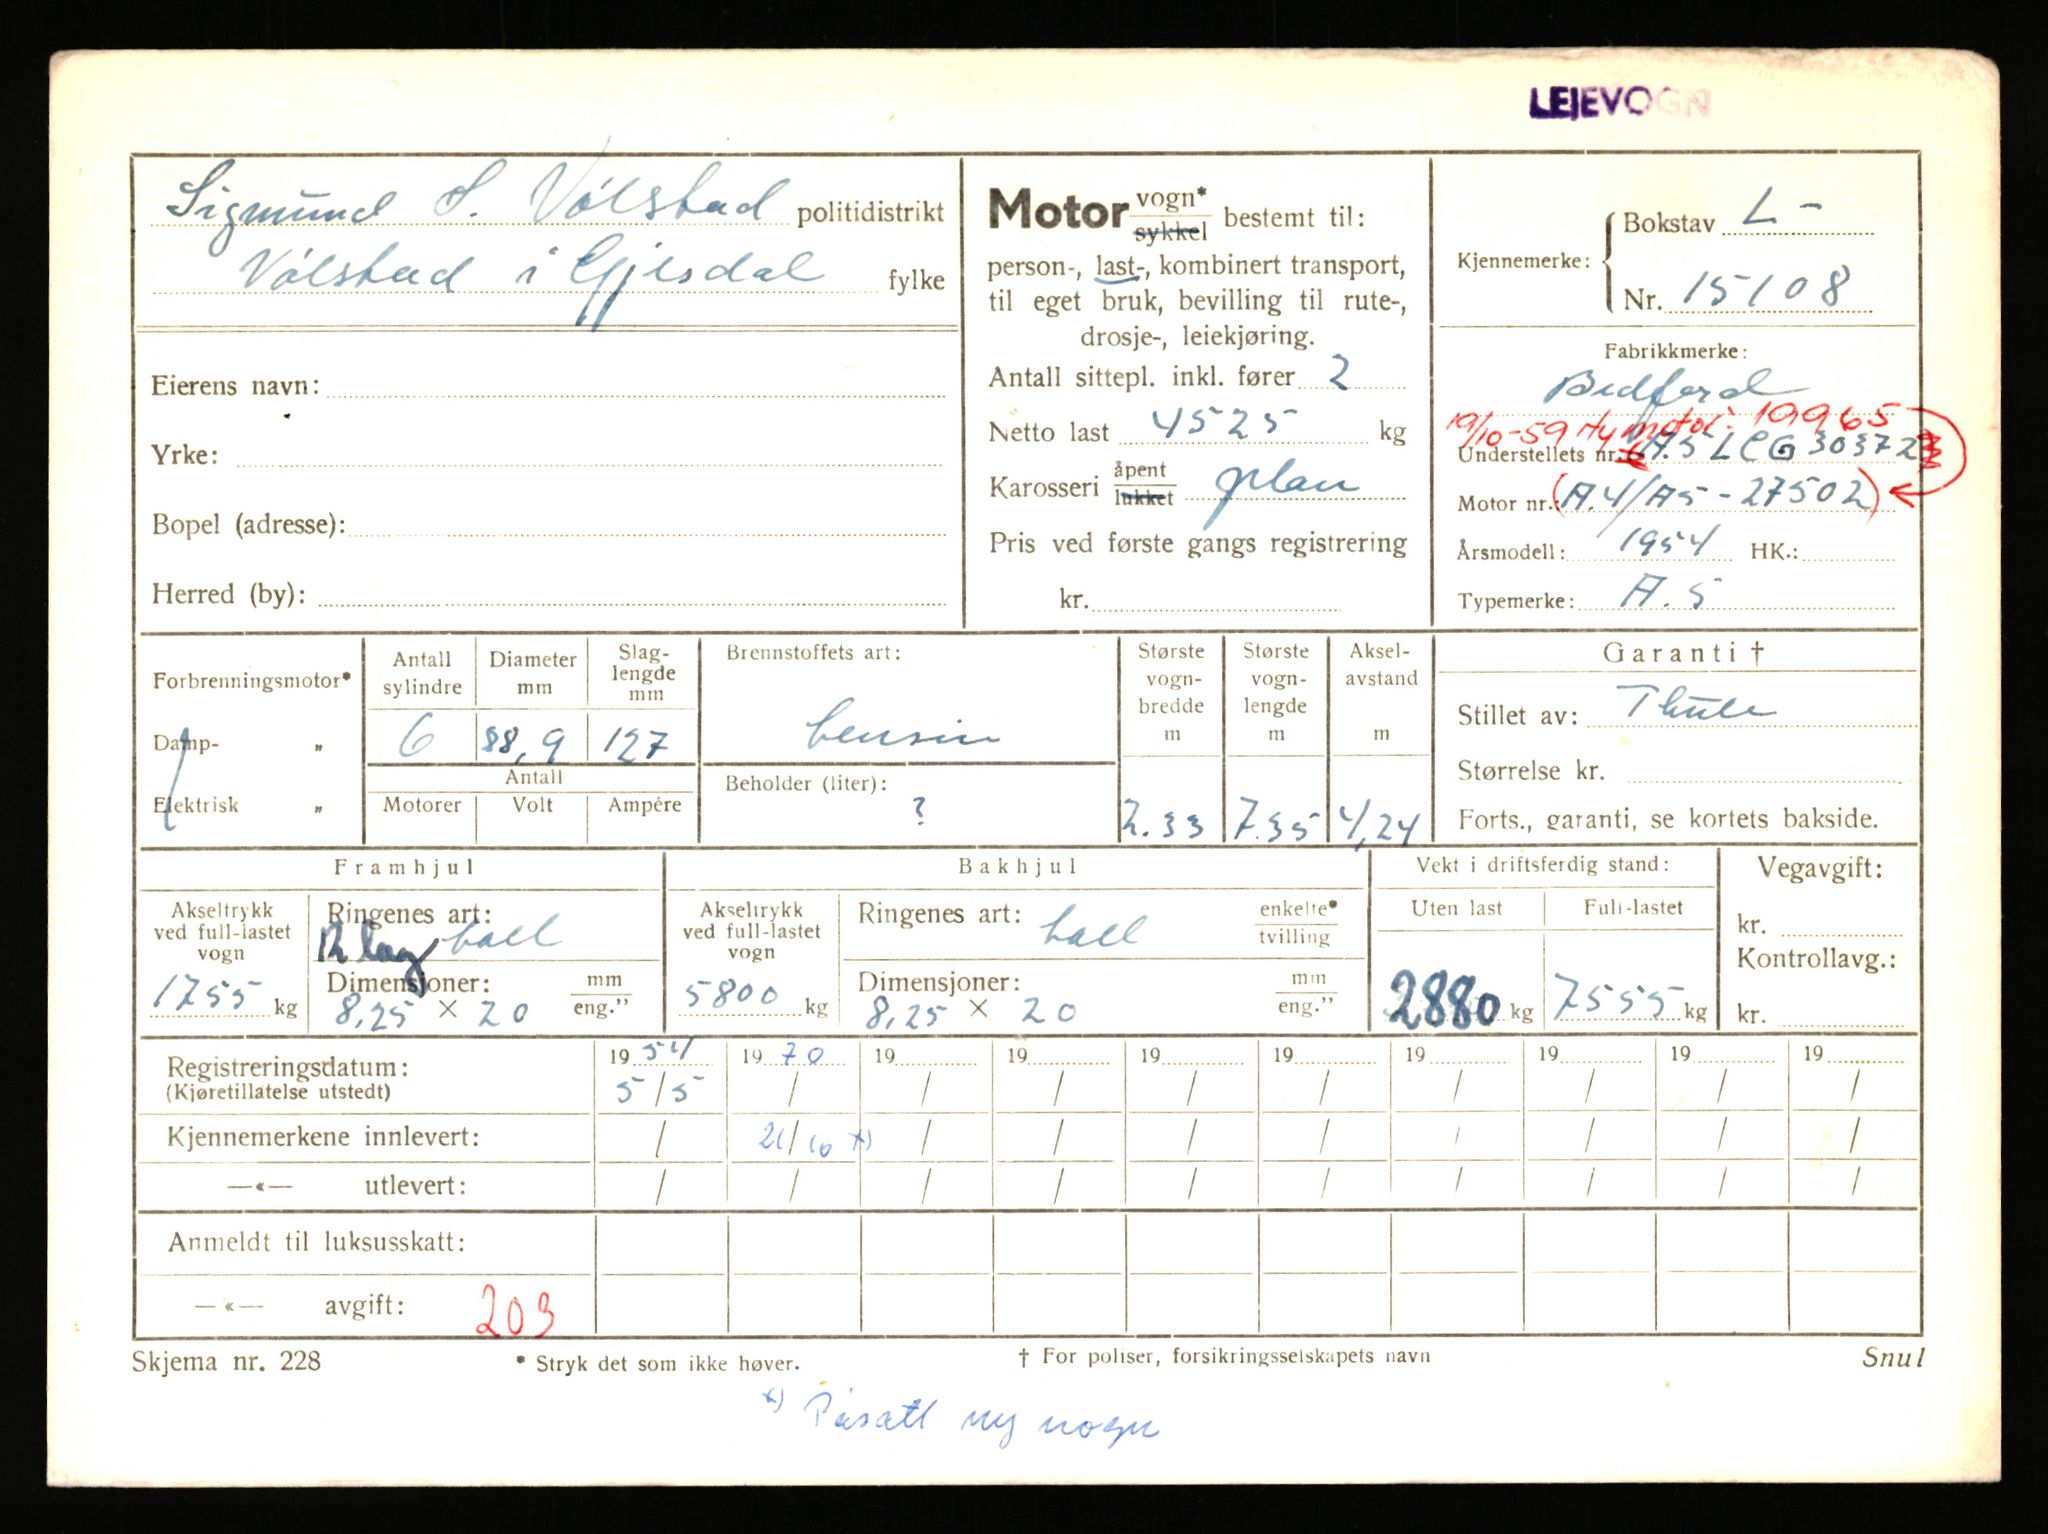 LEIEVOGN
Sigmund S. Vólstad politidistrikt
Vólstad i Gjesdal fylke
Eierens navn:
Yrke:
Bopel (adresse):
Herred (by):
Motor vogn* sykkel bestemt til:
person-, last-, kombinert transport,
til eget bruk, bevilling til rute-,
drosje-, leiekjøring.
Antall sittepl. inkl. fører 2
Netto last 4525 kg
Karosseri åpent lukket plan
Pris ved første gangs registrering
kr.
Kjennemerke: Bokstav L-
Nr. 15108
Fabrikkmerke:
Bedford
19/10-59 Ny motor: 19965
Understellets nr. A5LCG30372
Motor nr. (A.4/A5-27502)
Årsmodell: 1954 HK.:
Typemerke: A.5
Forbrenningsmotor*
Damp- „
Elektrisk „
Antall sylindre 6
Diameter mm 88,9
Slag-lengde mm 127
Antall
Motorer Volt Ampére
Brennstoffets art:
bensin
Beholder (liter):
?
Største vogn-bredde m 2.33
Største vogn-lengde m 7.35
Aksel-avstand m 4,24
Garanti †
Stillet av: Thule
Størrelse kr.
Forts., garanti, se kortets bakside.
Framhjul
Akseltrykk ved full-lastet vogn
1755 kg
Ringenes art: 12 lag ball
Dimensjoner: mm eng."
8,25 × 20
Bakhjul
Akseltrykk ved full-lastet vogn
5800 kg
Ringenes art: ball enkelte* tvilling
Dimensjoner: mm eng."
8,25 × 20
Vekt i driftsferdig stand:
Uten last Full-lastet
2880 kg 7555 kg
Vegavgift:
kr.
Kontrollavg.:
kr.
Registreringsdatum: 1954 1970 19 19 19 19 19 19 19 19
(Kjøretillatelse utstedt) 5/5 / / / / / / / / /
Kjennemerkene innlevert: / 21/10 x) / / / / / / / /
—«— utlevert: / / / / / / / / / /
Anmeldt til luksusskatt:
—«— avgift: 203
Skjema nr. 228 * Stryk det som ikke høver. † For poliser, forsikringsselskapets navn Snul
x) Påsatt ny vogn